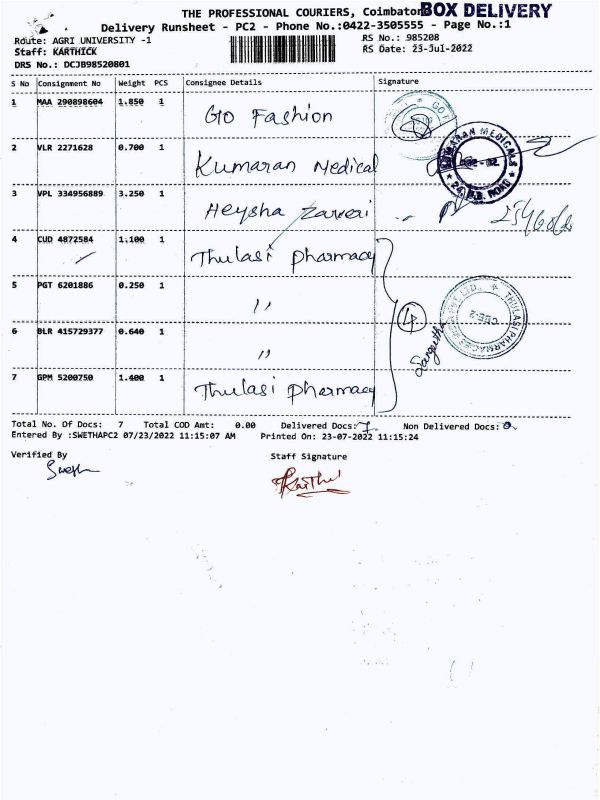 THE PROFESSIONAL COURIERS, Coimbator BOX DELIVERY
Delivery Runsheet - PC2 - Phone No.:0422-3505555 - Page No.:1
Route: AGRI UNIVERSITY -1 RS No.: 985208
Staff: KARTHICK RS Date: 23-Jul-2022
DRS No.: DCJB98520801
S No Consignment No Weight PCS Consignee Details Signature
1 MAA 290898604 1.850 1 GO Fashion
2 VLR 2271628 0.700 1 Kumaran Medical
KUMARAN MEDICALS
3 VPL 334956889 3.250 1 Heysha Zaveri
4 CUD 4872584 1.100 1 Thulasi pharmacy
5 PGT 6201886 0.250 1 "
4 Sangeetha
THULASI PHARMACIES CBE-2
6 BLR 415729377 0.640 1 "
7 GPM 5200750 1.400 1 Thulasi pharmacy
Total No. Of Docs: 7 Total COD Amt: 0.00 Delivered Docs: 7 Non Delivered Docs: 0
Entered By :SWETHAPC2 07/23/2022 11:15:07 AM Printed On: 23-07-2022 11:15:24
Verified By Staff Signature